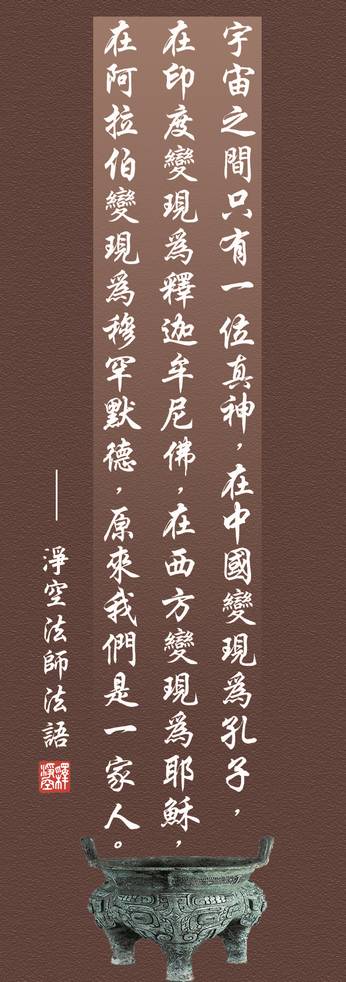 宇宙之間只有一位真神，在中國變現為孔子，
在印度變現為釋迦牟尼佛，在西方變現為耶穌，
在阿拉伯變現為穆罕默德，原來我們是一家人。
——淨空法師法語
釋淨空